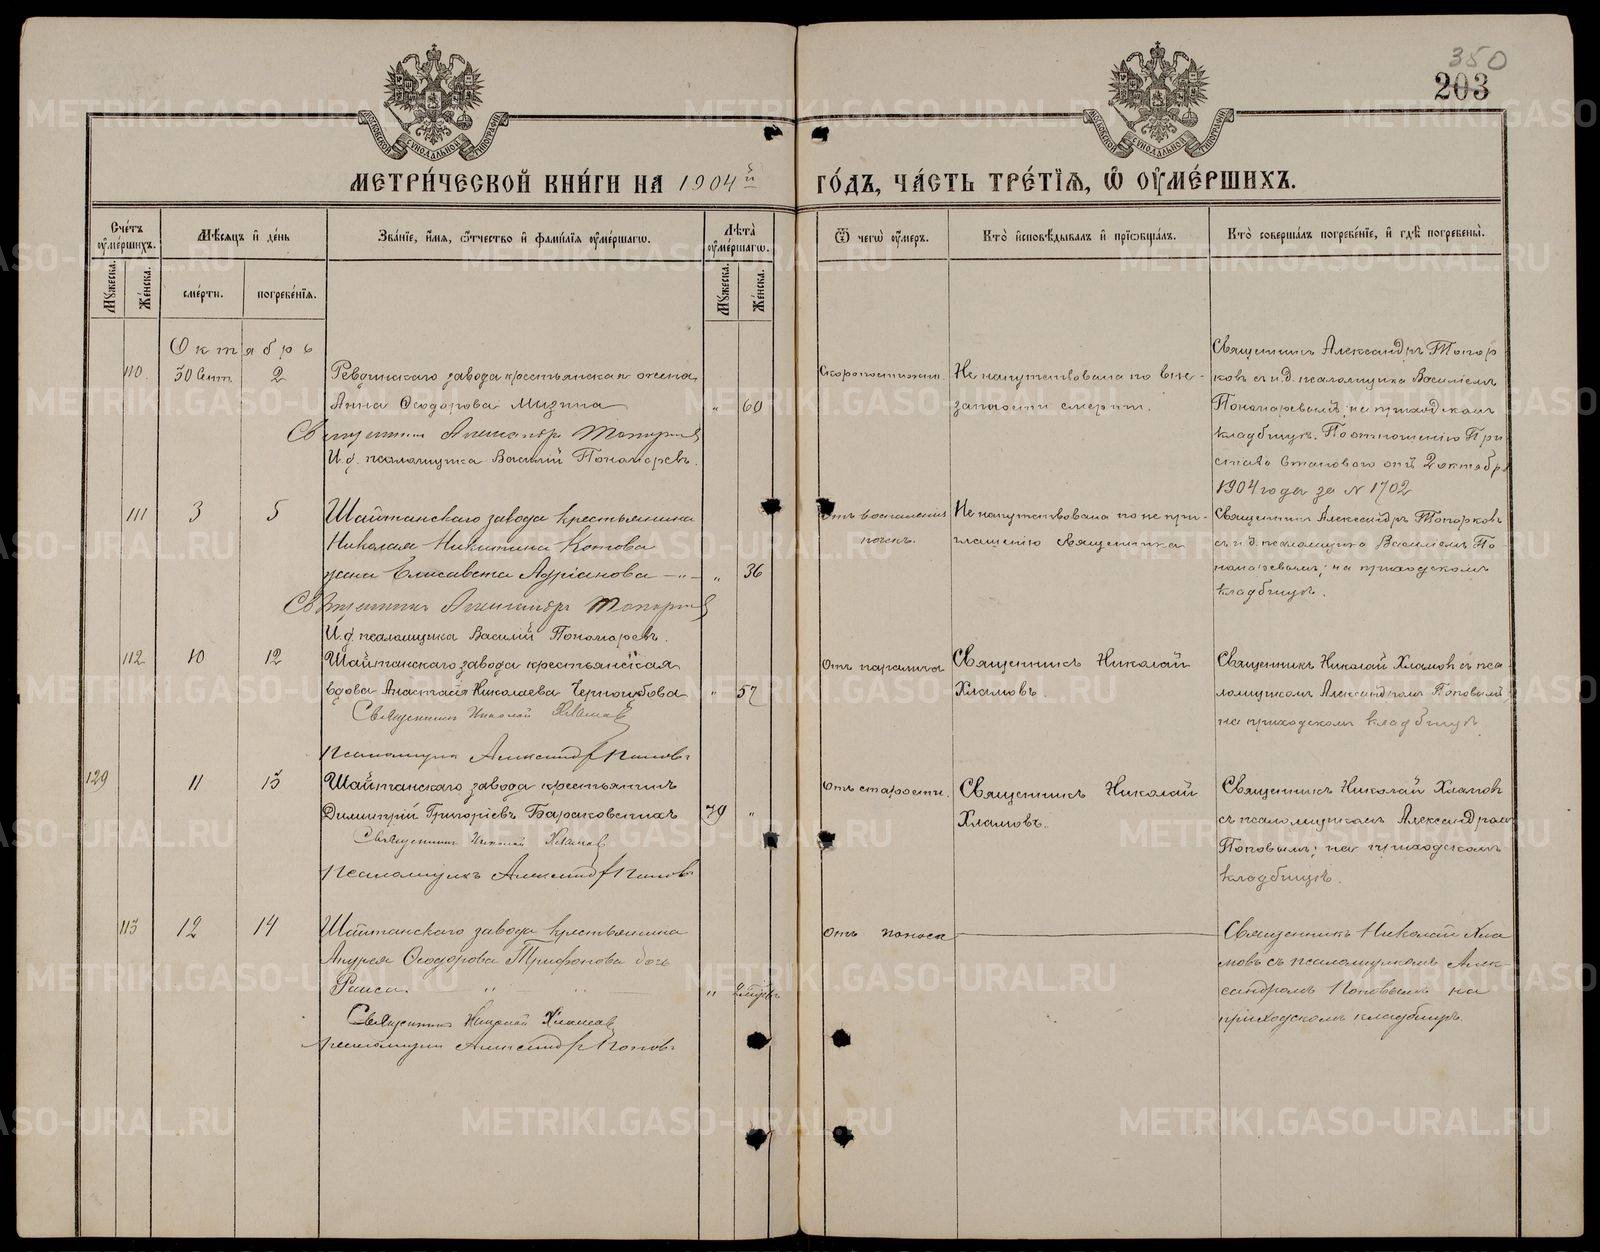 350
203
МЕТРИ́ЧЕСКОЙ КНИ́ГИ НА 1904й ГО́ДЪ, ЧА́СТЬ ТРЕ́ТІѦ, Ѡ҆ ОУ҆МЕ́РШИХЪ.
Сче́тъ оу҆ме́ршихъ.
Мѣ́сѧцъ и҆ де́нь
Зва́ніе, и҆́мѧ, ѻ҆́тчество и҆ фами́лїѧ оу҆ме́ршагѡ.
Лѣ́та оу҆ме́ршагѡ.
Ѿ чегѡ̀ оу҆́меръ.
Кто̀ и҆сповѣ́дывалъ и҆ прїѡбща́лъ.
Кто̀ соверша́лъ погребе́ніе, и҆ гдѣ̀ погребены̀.
Мꙋ́жеска.
Же́нска.
сме́рти.
погребе́нїѧ.
Мꙋ́жеска.
Же́нска.
Октябрь
110.
30 Сент.
2
Ревдинскаго завода крестьянская жена
Анна Ѳеодорова Мизина
" 60
Священникъ Александръ Топорковъ
И. д. псаломщика Василій Пономаревъ.
Скоропостижно.
Не напутствована по вне-
запности смерти.
Священникъ Александръ Топор
ковъ с и. д. псаломщика Василіемъ
Пономаревымъ, на приходском
кладбищѣ. По отношенію При
става Становаго отъ 2 октября
1904 года за N 1702
111
3
5
Шайтанскаго завода крестьянина
Николая Никитина Котова
жена Елисавета Адріанова — " —
" 36
Священникъ Александръ Топорковъ
И. д. псаломщика Василій Пономаревъ.
Отъ воспаленія
почекъ.
Не напутствована по не при-
глашенію священника
Священникъ Александръ Топорковъ
с и. д. псаломщика Василіемъ По
номаревымъ; на приходскомъ
кладбищѣ.
112
10
12
Шайтанскаго завода крестьянская
вдова Анастасія Николаева Черноубова
" 57
Священникъ Николай Хламовъ
Псаломщикъ Александръ Поповъ
Отъ паралича
Священникъ Николай
Хламовъ.
Священникъ Николай Хламовъ с пса
ломщикомъ Александромъ Поповымъ
на приходскомъ кладбищѣ
129
11
13
Шайтанскаго завода крестьянинъ
Димитрій Григоріевъ Бараковскихъ
79 "
Священникъ Николай Хламовъ
Псаломщикъ Александръ Поповъ
Отъ старости.
Священникъ Николай
Хламовъ.
Священникъ Николай Хламовъ
съ псаломщикомъ Александромъ
Поповымъ; на приходскомъ
кладбищѣ.
113
12
14
Шайтанскаго завода крестьянина
Андрея Ѳеодорова Трифонова дочь
Раиса " "
"
Священникъ Николай Хламовъ
Псаломщикъ Александръ Поповъ
Отъ поноса
Священникъ Николай Хла
мовъ съ псаломщикомъ Алек-
сандромъ Поповымъ на
приходскомъ кладбищѣ.
METRIKI.GASO-URAL.RU